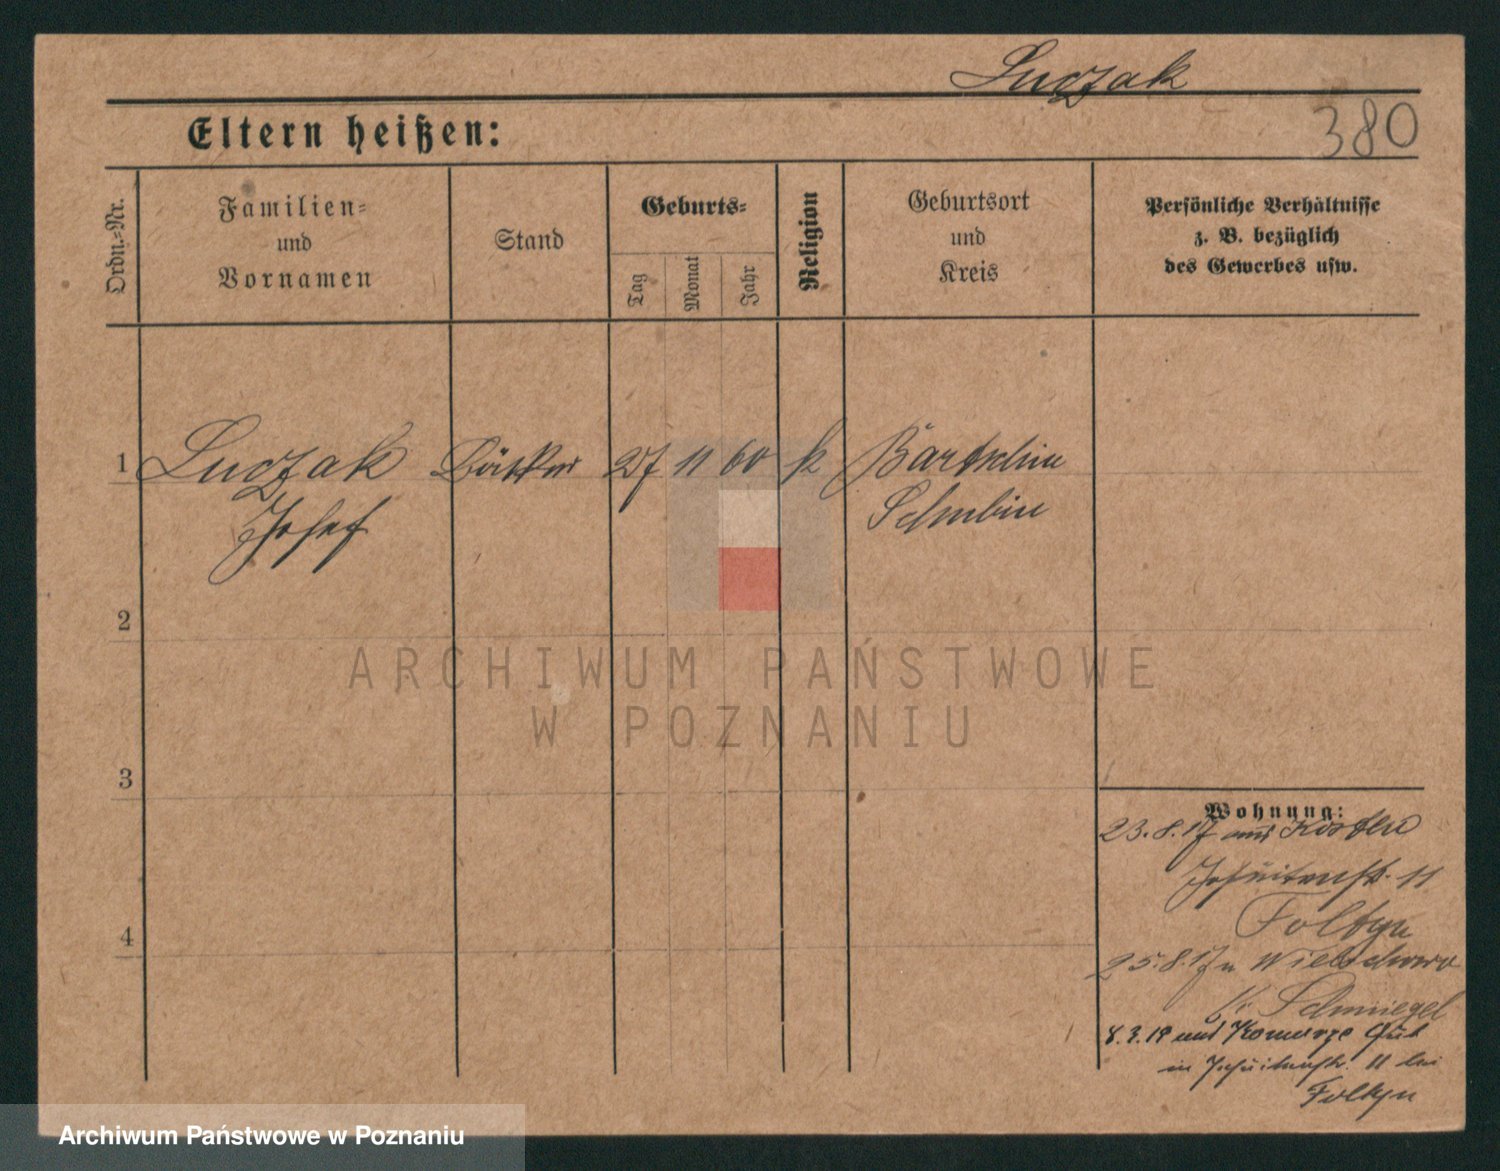 Luczak
380
Eltern heißen:
Ordn.-Nr.
Familien-
und
Vornamen
Stand
Geburts-
Tag
Monat
Jahr
Religion
Geburtsort
und
Kreis
Persönliche Verhältnisse
z. B. bezüglich
des Gewerbes usw.
1 Luczak Bäcker 27 11 60 k Bartschin
Josef Schubin
2
3
4
Wohnung:
23.8.17 aus Kosten
Jesuitenstr. 11
Foltyn
25.8.17 n Wielichowo
Kr Schmiegel
8.3.18 aus Gut
in Jesuitenstr. 11 bei
Foltyn
ARCHIWUM PAŃSTWOWE
W POZNANIU
Archiwum Państwowe w Poznaniu